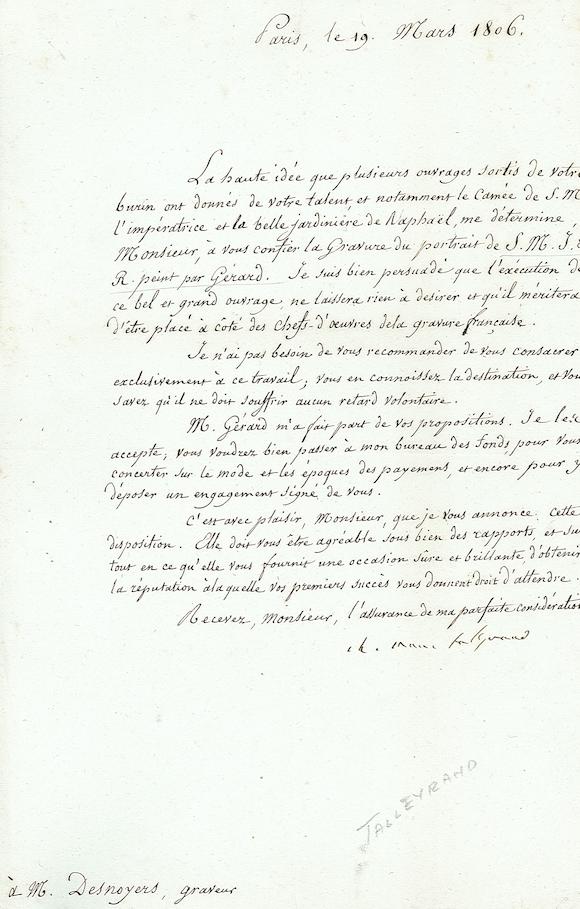 Paris, le 19. Mars 1806.
La haute idée que plusieurs ouvrages sortis de votre
burin ont donnés de votre talent et notamment le Camée de S. M.
l'impératrice et la belle jardinière de Raphaël, me détermine,
Monsieur, à vous confier la Gravure du portrait de S. M. I. &
R. peint par Gérard. Je suis bien persuadé que l'exécution de
ce bel et grand ouvrage, ne laissera rien à desirer et qu'il méritera
d'être placé à côté des Chefs-d'œuvres dela gravure française.
Je n'ai pas besoin de vous recommander de vous consacrer
exclusivement à ce travail; vous en connoissez la destination, et vou
savez qu'il ne doit souffrir aucun retard volontaire.
M. Gérard m'a fait part de vos propositions. Je les
accepte; vous voudrez bien passer à mon bureau des fonds, pour vous
concerter sur le mode et les époques des payemens, et encore pour y
déposer un engagement signé de vous.
C'est avec plaisir, Monsieur, que je vous annonce cette
disposition. Elle doit vous être agréable sous bien des rapports, et sur
tout en ce qu'elle vous fournit une occasion sûre et brillante d'obtenir
la réputation àlaquelle vos premiers succès vous donnent droit d'attendre.
Recevez, Monsieur, l'assurance de ma parfaite considération
ch. mau. talleyrand
TALLEYRAND
à M. Desnoyers, graveur